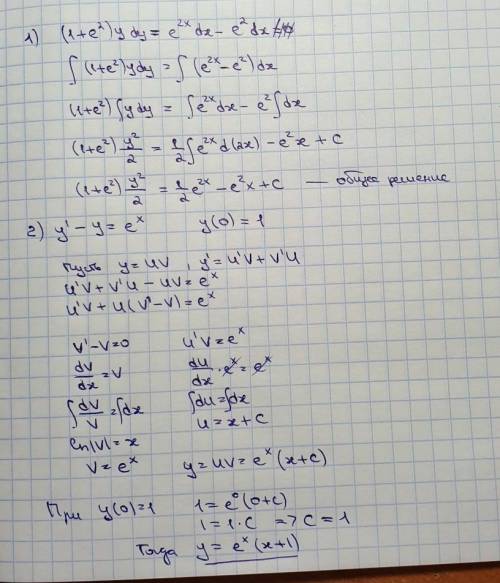 1) (1+e²) y dy = e²ˣ dx − e² dx
∫ (1+e²) y dy = ∫ (e²ˣ − e²) dx
(1+e²) ∫ y dy = ∫ e²ˣ dx − e² ∫ dx
(1+e²) y²/2 = 1/2 ∫ e²ˣ d(2x) − e² x + C
(1+e²) y²/2 = 1/2 e²ˣ − e² x + C — общее решение
2) y' − y = eˣ y(0) = 1
Пусть y = UV, y' = U'V + V'U
U'V + V'U − UV = eˣ
U'V + U(V' − V) = eˣ
V' − V = 0 U'V = eˣ
dV/dx = V dU/dx · eˣ = eˣ
∫ dV/V = ∫ dx ∫ dU = ∫ dx
ln|V| = x U = x + C
V = eˣ y = UV = eˣ (x + C)
При y(0) = 1 1 = e⁰ (0 + C)
1 = 1 · C => C = 1
Тогда y = eˣ (x + 1)